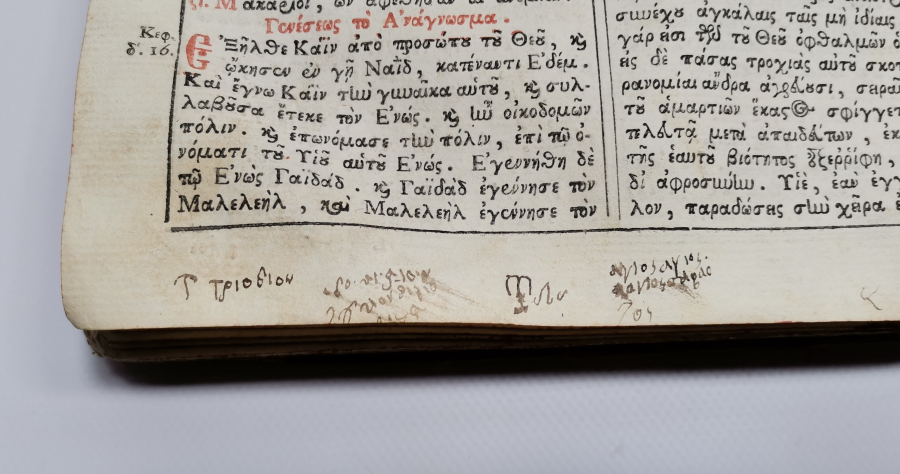 Γενέσεως τὸ Ἀνάγνωσμα.
Κεφ.
δ'. 16.
Ἐξῆλθε Καῒν ἀπὸ προσώπου τοῦ Θεοῦ, καὶ
ᾤκησεν ἐν γῇ Ναῒδ, κατέναντι Ἐδέμ.
Καὶ ἔγνω Καῒν τὴν γυναῖκα αὐτοῦ, καὶ συλ-
λαβοῦσα ἔτεκε τὸν Ἐνώς. καὶ ἦν οἰκοδομῶν
πόλιν. καὶ ἐπωνόμασε τὴν πόλιν, ἐπὶ τῷ ὀ-
νόματι τοῦ Υἱοῦ αὐτοῦ Ἐνώς. Ἐγεννήθη δὲ
τῷ Ἐνὼς Γαϊδάδ. καὶ Γαϊδὰδ ἐγέννησε τὸν
Μαλελεὴλ, καὶ Μαλελεὴλ ἐγέννησε τὸν
συνέχου ἀγκάλαις ταῖς μὴ ἰδίας
γάρ εἰσι τοῦ Θεοῦ ὀφθαλμῶν
εἰς δὲ πάσας τροχιὰς αὐτοῦ σκοπ
ρανομίαι ἄνδρα ἀγρεύουσι, σειραῖ
τοῦ ἁμαρτιῶν ἕκαστος σφίγγετ
τελευτᾷ μετὰ ἀπαιδεύτων, ἐκ
τῆς ἑαυτοῦ βιότητος ἐξερρίφη,
δι' ἀφροσύνην. Υἱὲ, ἐὰν ἐγγ
λον, παραδώσεις σὴν χεῖρα
τριοδιον